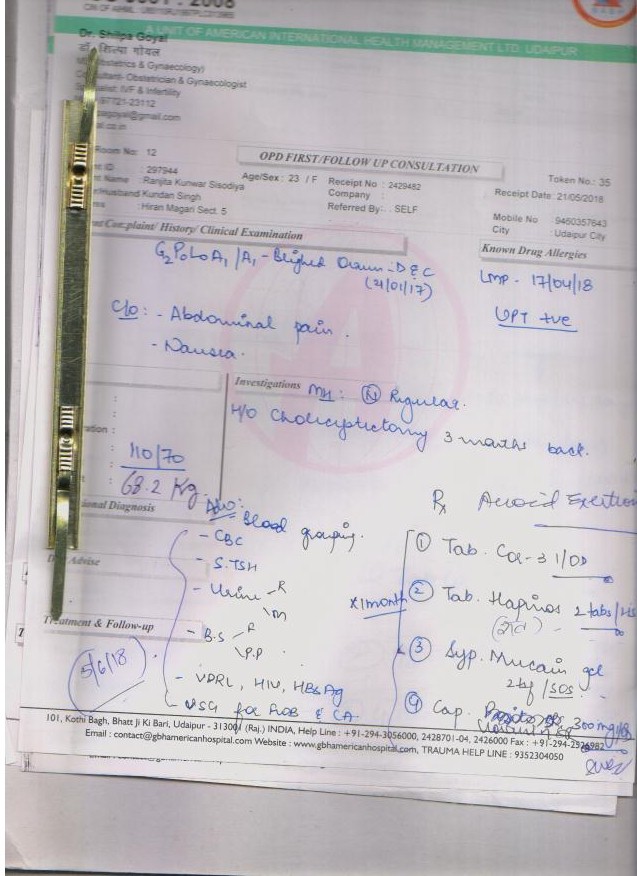 : 2008
A UNIT OF AMERICAN INTERNATIONAL HEALTH MANAGEMENT LTD. UDAIPUR
Dr. Shilpa Goyal
डॉ. शिल्पा गोयल
Obstetrics & Gynaecology)
Obstetrician & Gynaecologist
IVF & Infertility
97721-23112
goyal@gmail.com
Room No: 12
OPD FIRST/FOLLOW UP CONSULTATION
Token No.: 35
ID : 297944
Age/Sex : 23 / F
Receipt No : 2429482
Receipt Date : 21/05/2018
Name : Ranjita Kunwar Sisodiya
Company :
/Husband Kundan Singh
Referred By: . SELF
Mobile No 9460357643
: Hiran Magari Sect. 5
City : Udaipur City
Complaint/ History/ Clinical Examination
Known Drug Allergies
G2P0L0A1 /A1 - Blighted Ovum - D&C
(21/01/17)
LMP - 17/04/18
UPT +ve
C/o : - Abdominal pain.
- Nausea.
Investigations
MH : (N) Regular.
H/o Cholicyptictomy 3 months back.
110/70
68.2 Kg.
Diagnosis
Adv:
- Blood grouping.
- CBC
- S.TSH
- Urine - R
M
- B.S - R
P.P
- VDRL, HIV, HBsAg
- USG for
Advise
Treatment & Follow-up
5/6/18
Rx Avoid Exertion
x 1 month
① Tab. 1/OD
② Tab. 2 tabs/HS
③ Syp. Mucain gel
2 tsf / SOS
④ Cap. 300 mg
101, Kothi Bagh, Bhatt Ji Ki Bari, Udaipur - 313001 (Raj.) INDIA, Help Line : +91-294-3056000, 2428701-04, 2426000 Fax : +91-294-2526982
Email : contact@gbhamericanhospital.com Website : www.gbhamericanhospital.com, TRAUMA HELP LINE : 9352304050